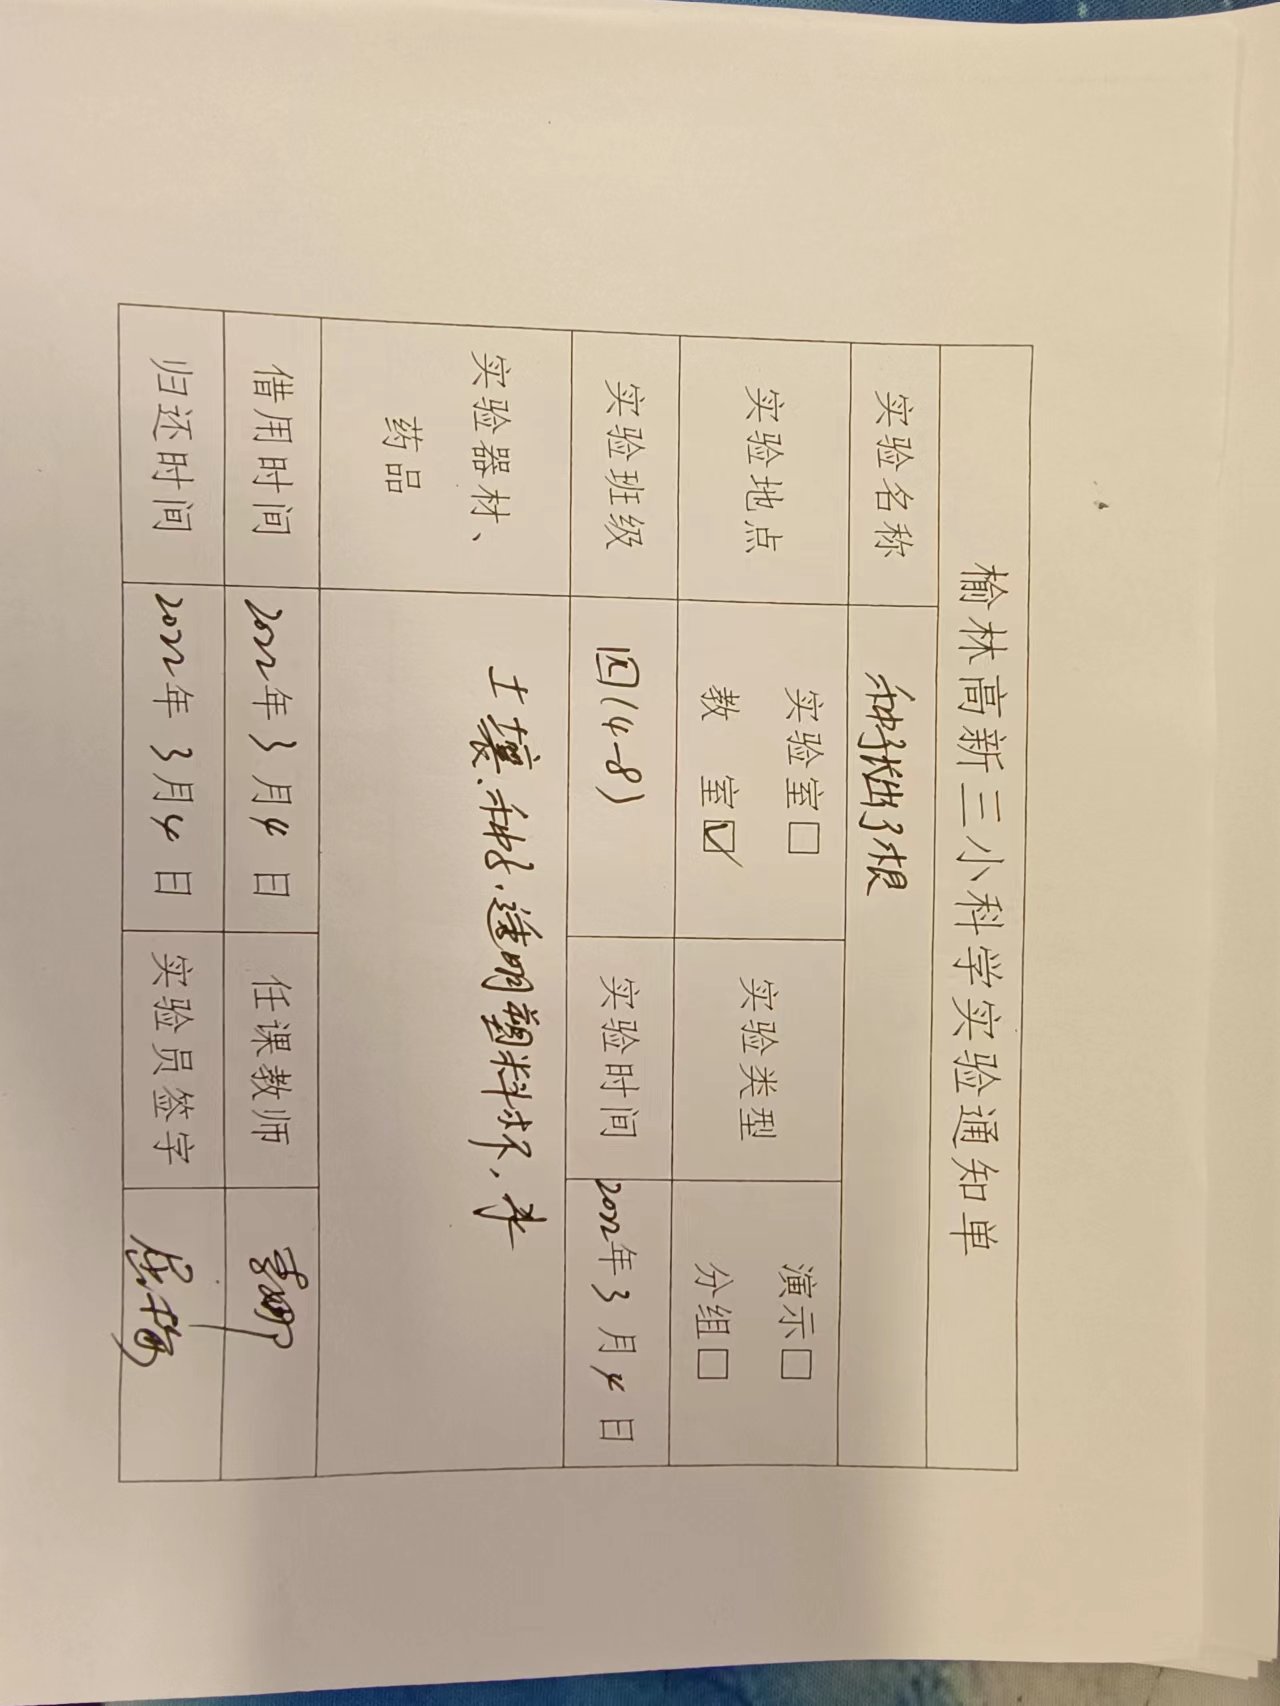 榆林高新三小科学实验通知单
实验名称 种子长出了根
实验地点 实验室□ 教 室☑ 实验类型 演示□ 分组□
实验班级 四(4-8) 实验时间 2022年3月4日
实验器材、药品 土壤、种子、透明塑料杯、水
借用时间 2022年3月4日 任课教师
归还时间 2022年3月4日 实验员签字